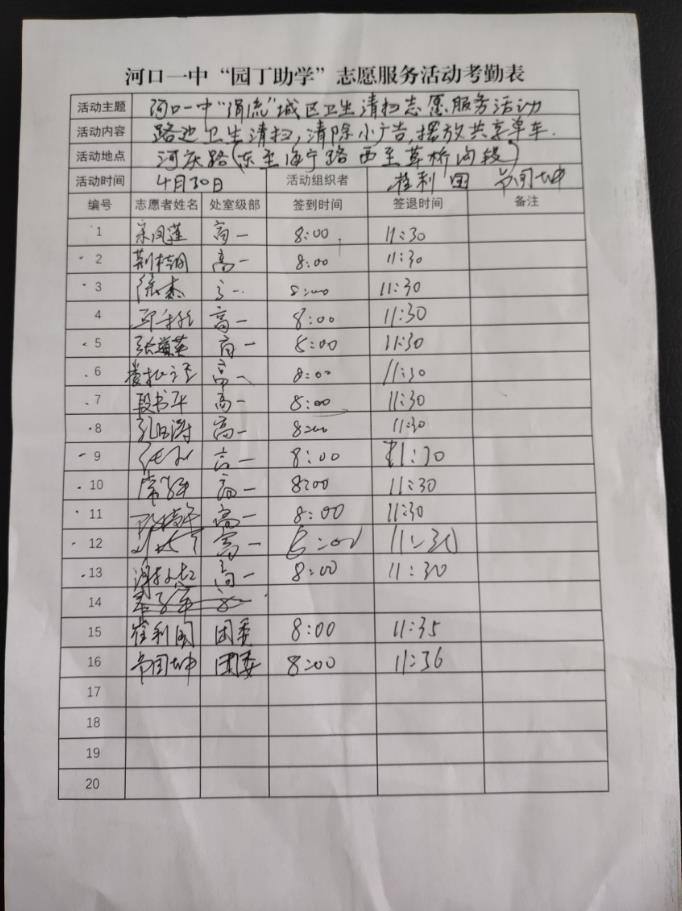 河口一中“园丁助学”志愿服务活动考勤表
活动主题 河口一中“涓流”城区卫生清扫志愿服务活动
活动内容 路边卫生清扫，清除小广告，摆放共享单车.
活动地点 河庆路(东至海宁路 西至草桥沟段)
活动时间 4月30日 活动组织者 崔利国
编号 志愿者姓名 处室级部 签到时间 签退时间 备注
1 宋凤莲 高一 8:00 11:30
2 高一 8:00 11:30
3 徐杰 8:00 11:30
4 高一 8:00 11:30
5 张道英 高一 8:00 11:30
6 高一 8:00 11:30
7 段书平 高一 8:00 11:30
8 高一 8:00 11:30
9 高一 8:00 11:30
10 高一 8:00 11:30
11 高一 8:00 11:30
12 高一 8:00 11:30
13 高一 8:00 11:30
14
15 崔利国 团委 8:00 11:35
16 团委 8:00 11:36
17
18
19
20